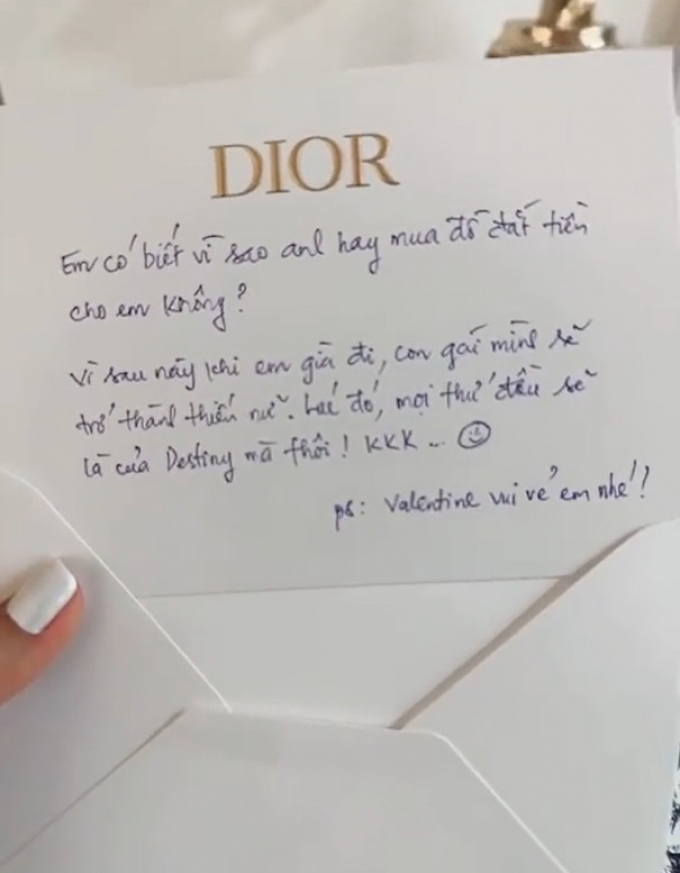 DIOR
Em có biết vì sao anh hay mua đồ đắt tiền
cho em không?
Vì sau này khi em già đi, con gái mình sẽ
trở thành thiếu nữ. Lúc đó, mọi thứ đều sẽ
là của Destiny mà thôi! KKK... ☺
ps: Valentine vui vẻ em nhé!